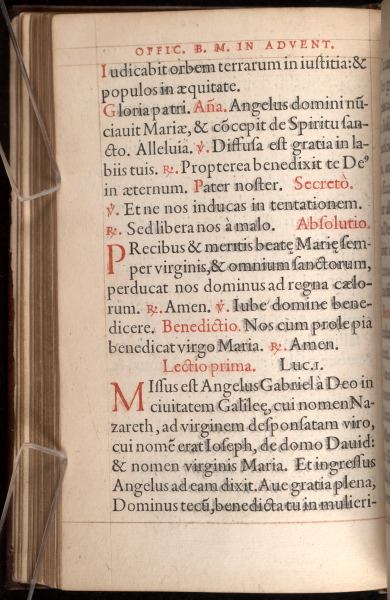 OFFIC. B. M. IN ADVENT.
Iudicabit orbem terrarum in iustitia: &
populos in æquitate.
Gloria patri. Aña. Angelus domini nũ-
ciauit Mariæ, & cõcepit de Spiritu san-
cto. Alleluia. ℣. Diffusa est gratia in la-
biis tuis. ℟. Propterea benedixit te Deꝰ
in æternum. Pater noster. Secretò.
℣. Et ne nos inducas in tentationem.
℟. Sed libera nos à malo. Absolutio.
PRecibus & meritis beatę Marię sem-
per virginis, & omnium sanctorum,
perducat nos dominus ad regna cælo-
rum. ℟. Amen. ℣. Iube domine bene-
dicere. Benedictio. Nos cum prole pia
benedicat virgo Maria. ℟. Amen.
Lectio prima. LUC.I.
MIssus est Angelus Gabriel à Deo in
ciuitatem Galileę, cui nomen Na-
zareth, ad virginem desponsatam viro,
cui nomẽ erat Ioseph, de domo Dauid:
& nomen virginis Maria. Et ingressus
Angelus ad eam dixit. Aue gratia plena,
Dominus tecũ, benedicta tu in mulieri-